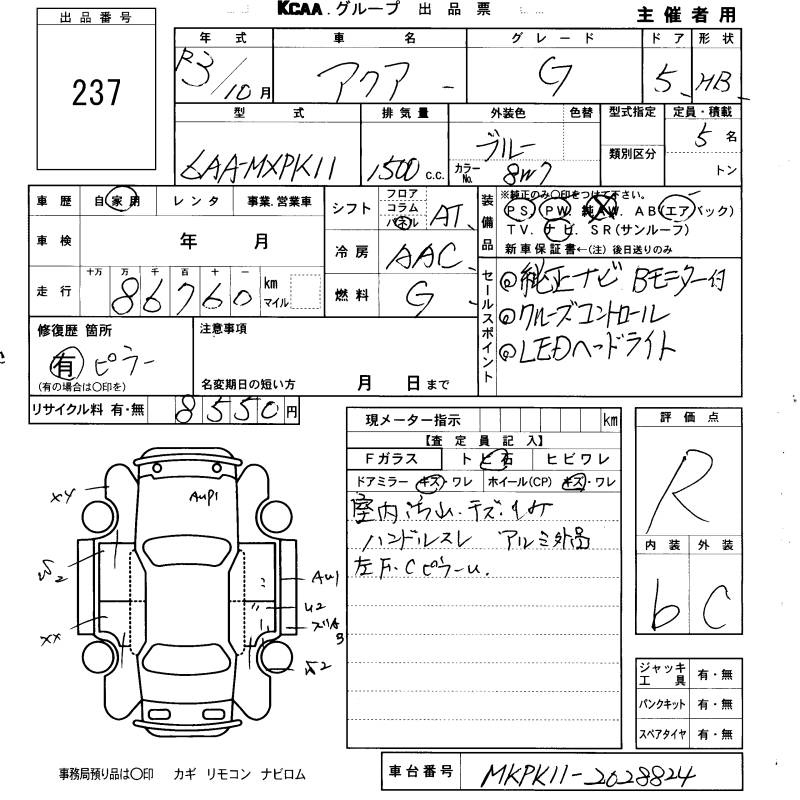 KCAA.グループ 出品票
主催者用
出品番号
237
年式 車名 グレード ドア 形状
R3/10月 アクア G 5 HB
型式 排気量 外装色 色替 型式指定 定員・積載
6AA-MXPK11 1500 c.c. ブルー 5名
カラーNo. 8W7 類別区分 トン
車歴 自家用 レンタ 事業.営業車
車検 年 月
走行 十万 万 千 百 十 一
86760 km マイル
シフト フロア コラム パネル AT
冷房 AAC
燃料 G
装備品 ※純正のみ〇印をつけて下さい。
PS. PW. 純AW. AB(エアバック)
TV. ナビ. SR(サンルーフ)
新車保証書←(注)後日送りのみ
セールスポイント
◎純正ナビ Bモニター付
◎クルーズコントロール
◎LEDヘッドライト
修復歴 箇所
有 ピラー
(有の場合は〇印を)
注意事項
名変期日の短い方 月 日まで
リサイクル料 有・無 8550円
現メーター指示 km
【査定員記入】
Fガラス ト ビ石 ヒビワレ
ドアミラー キズ・ワレ ホイール(CP) キズ・ワレ
室内汚れ・キズ・イタミ
ハンドルスレ アルミ外品
左F.CピラーU.
評価点
R
内装 外装
b C
ジャッキ工具 有・無
パンクキット 有・無
スペアタイヤ 有・無
AUP1
XY
XX
AU1
U2
事務局預り品は〇印 カギ リモコン ナビロム
車台番号 MKPK11-2028824